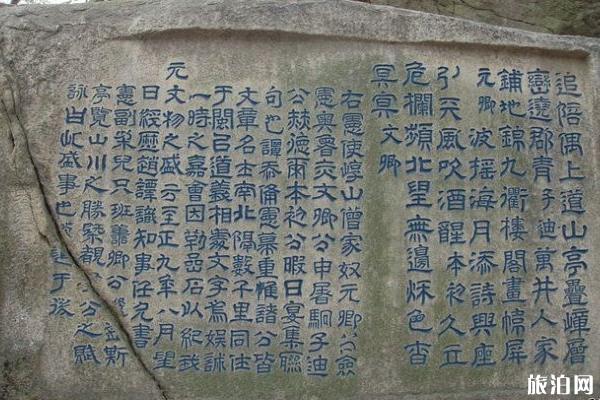 追陪偶上道山亭疊嶂層
巒遶郡青子迪萬井人家
鋪地錦九衢樓閣畫幃屏
元卿波搖海月添詩興座
引天風吹酒醒本初久立
危欄頻北望無邊秋色杳
冥冥文卿
右憲使崞山僧家奴元卿公僉
憲奧魯赤文卿公申屠駉子迪
公赫德爾本初公暇日宴集聯
句也譚忝備憲幕重惟諸公皆
文章名士南北隔數千里同仕
于閩以道義相處文字為娛誠
一時之嘉會因勒岳石以紀我
元文物之盛云至正九年八月望
日經歷趙譚識知事任允書
憲副朵兒只班 卿公 斯
亭覽山川之勝聚觀 公之賦
詠 此盛事也 于後
旅泊网